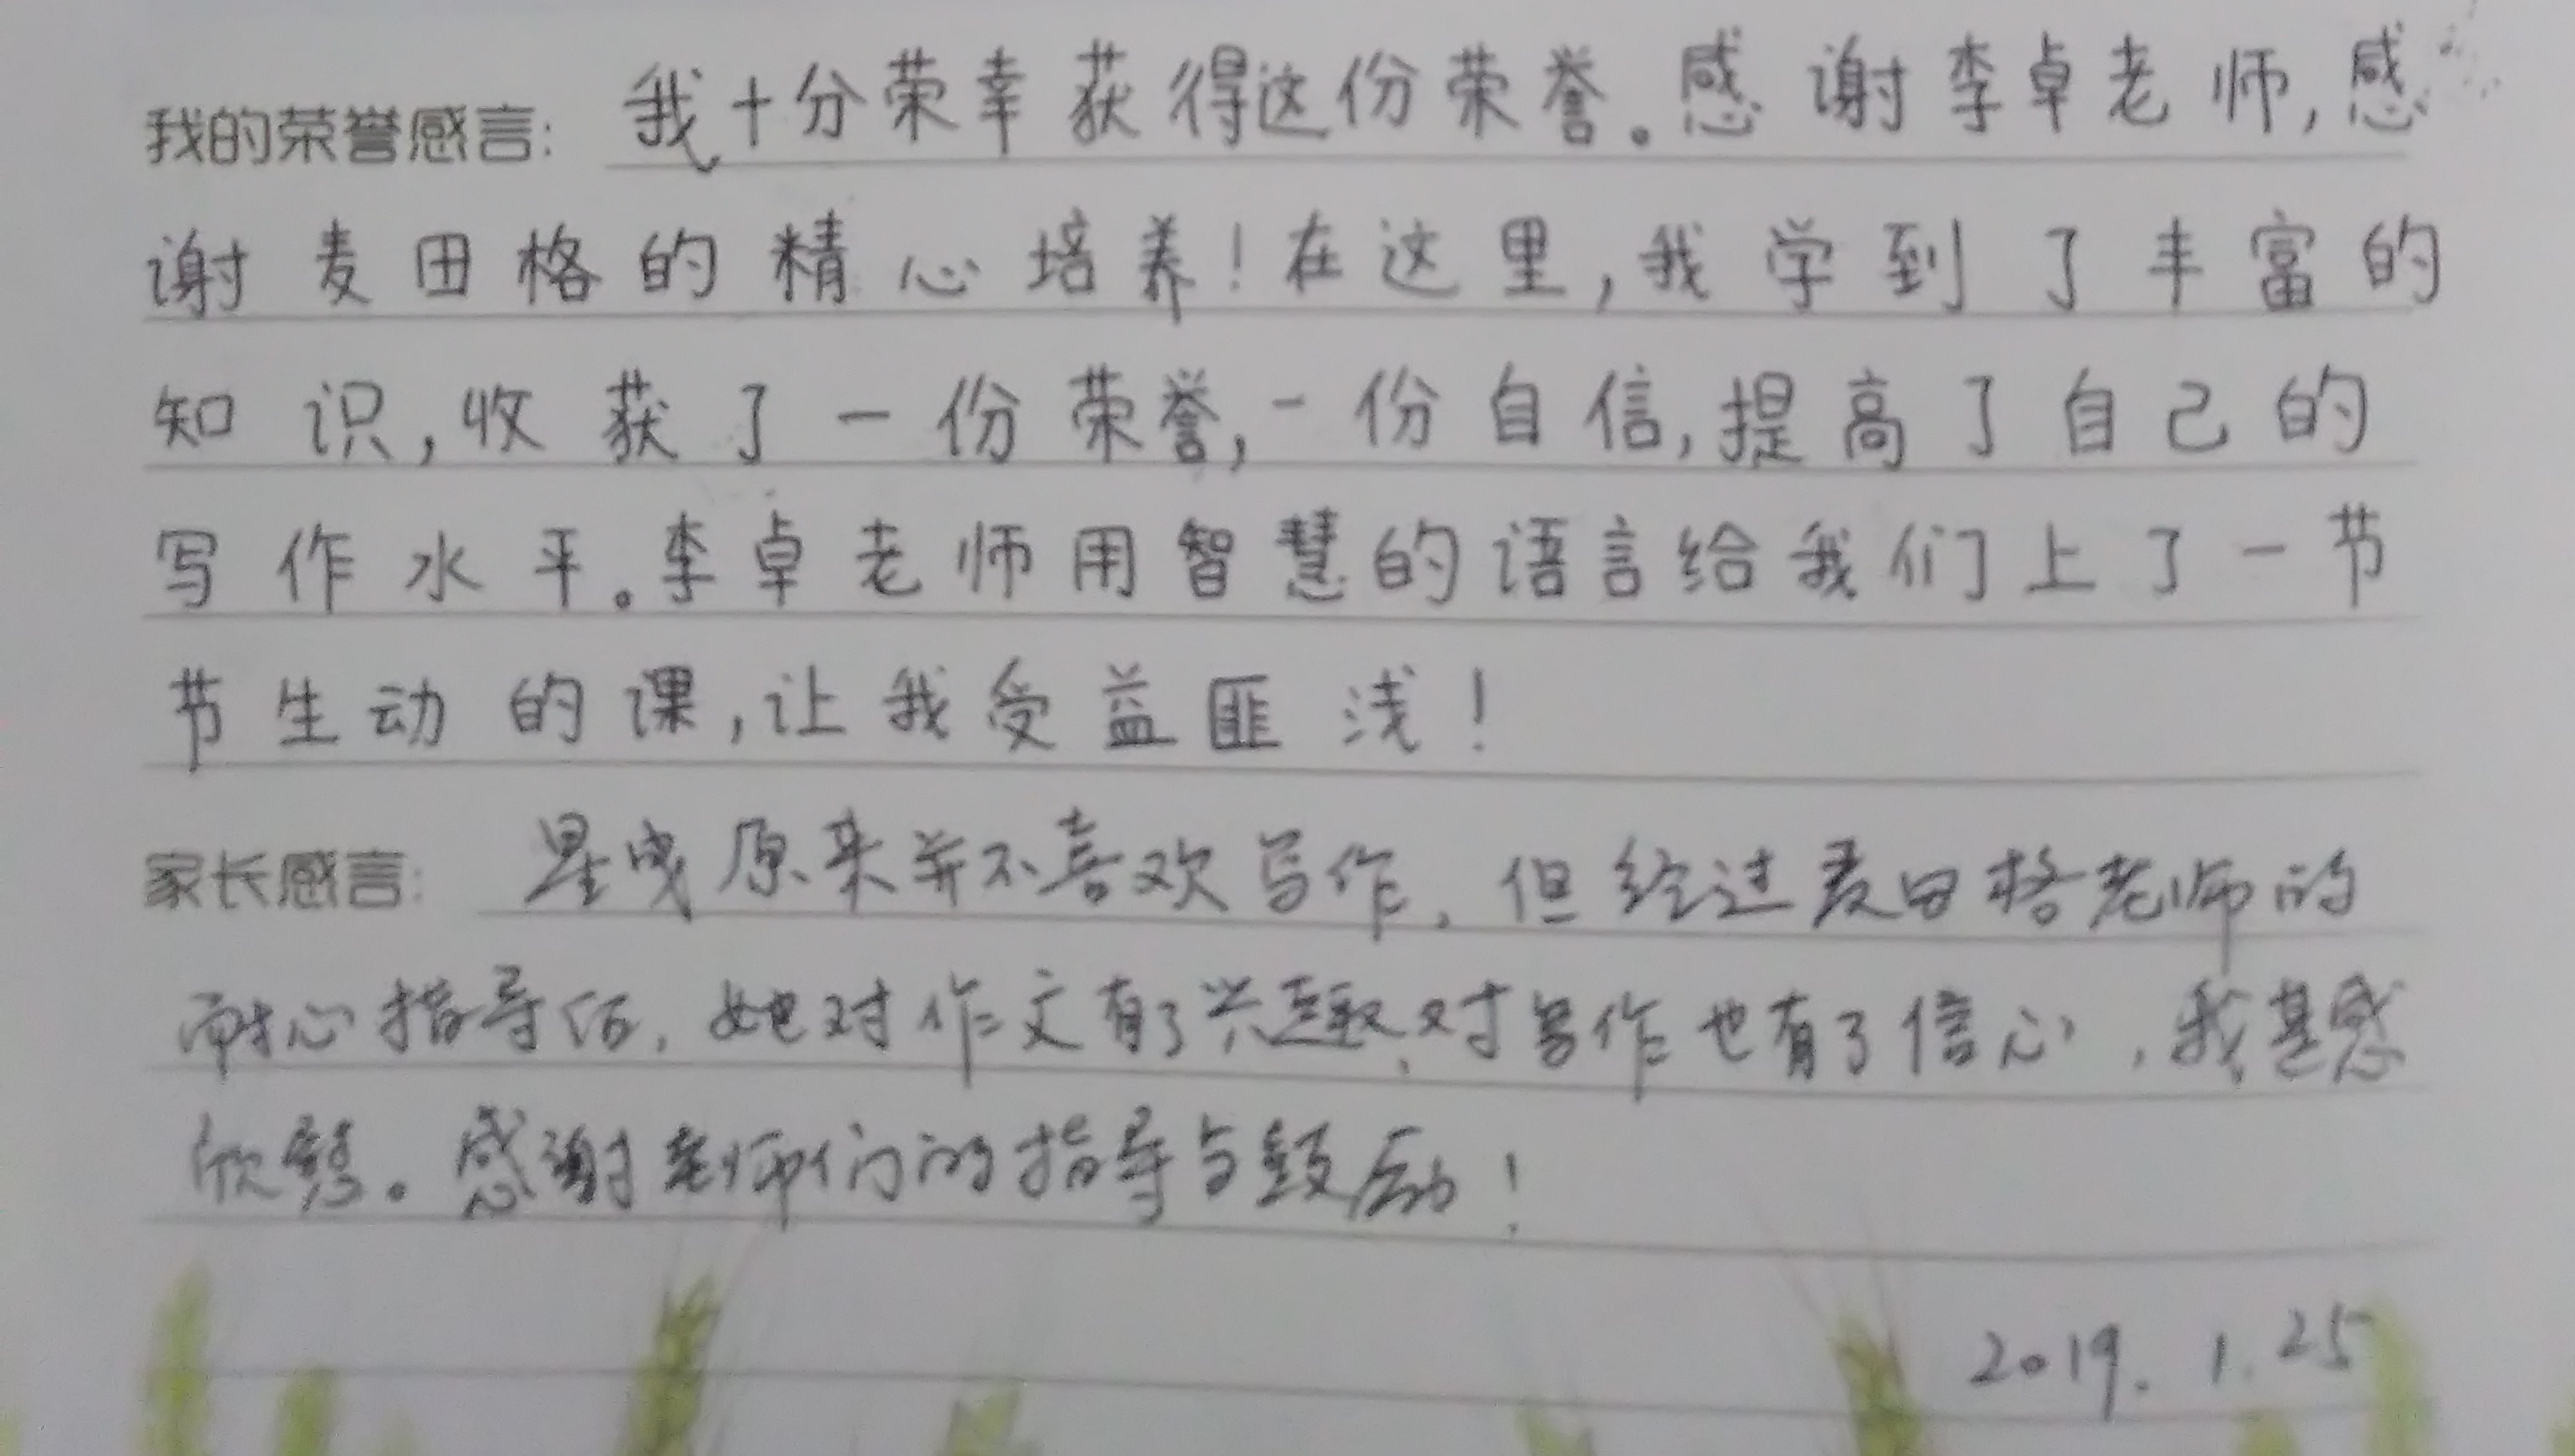 我的荣誉感言: 我十分荣幸获得这份荣誉。感谢李卓老师,感
谢麦田格的精心培养!在这里,我学到了丰富的
知识,收获了一份荣誉,一份自信,提高了自己的
写作水平。李卓老师用智慧的语言给我们上了一节
节生动的课,让我受益匪浅!
家长感言: 星曳原来并不喜欢写作,但经过麦田格老师的
耐心指导后,她对作文有了兴趣,对写作也有了信心,我甚感
欣慰。感谢老师们的指导与鼓励!
2019.1.25